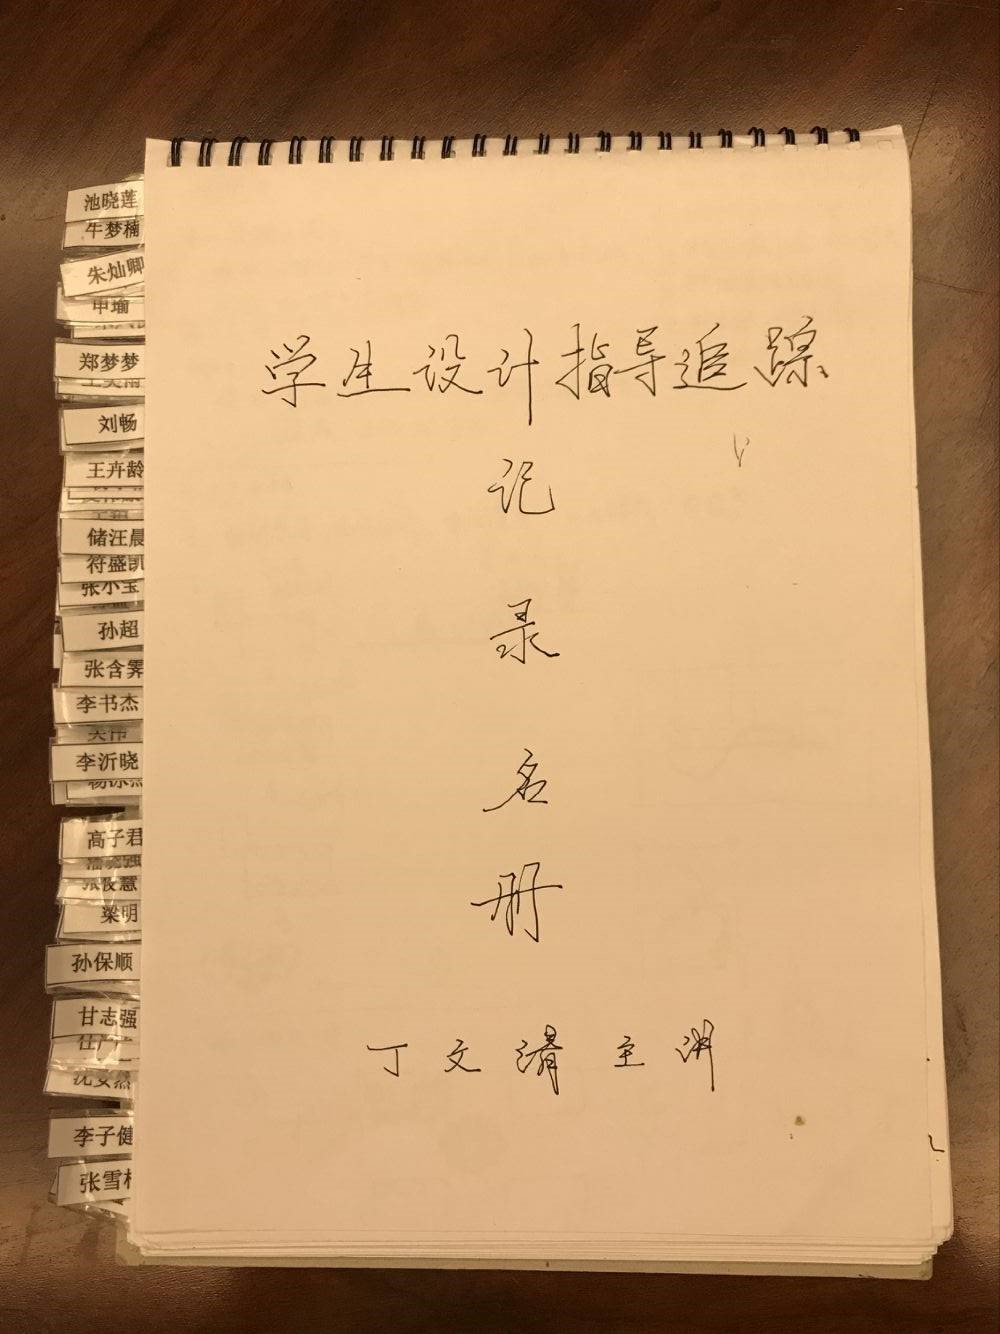 学生设计指导追踪
记
录
名
册
丁文清主讲
池晓莲
牛梦楠
朱灿卿
申瑜
郑梦梦
刘畅
王卉龄
储汪晨
符盛凯
张小宝
孙超
张含霁
李书杰
李沂晓
高子君
张俊慧
梁明
孙保顺
甘志强
李子健
张雪